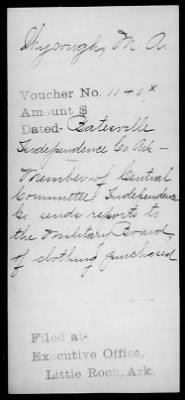 Wycough, M A
Voucher No. 1149x
Amount $
Dated- Batesville
Independence Co Ark -
Member of Central
Committee Independence
Co. sends reports to
the Military Board,
of clothing purchased
Filed at-
Executive Office,
Little Rock, Ark.